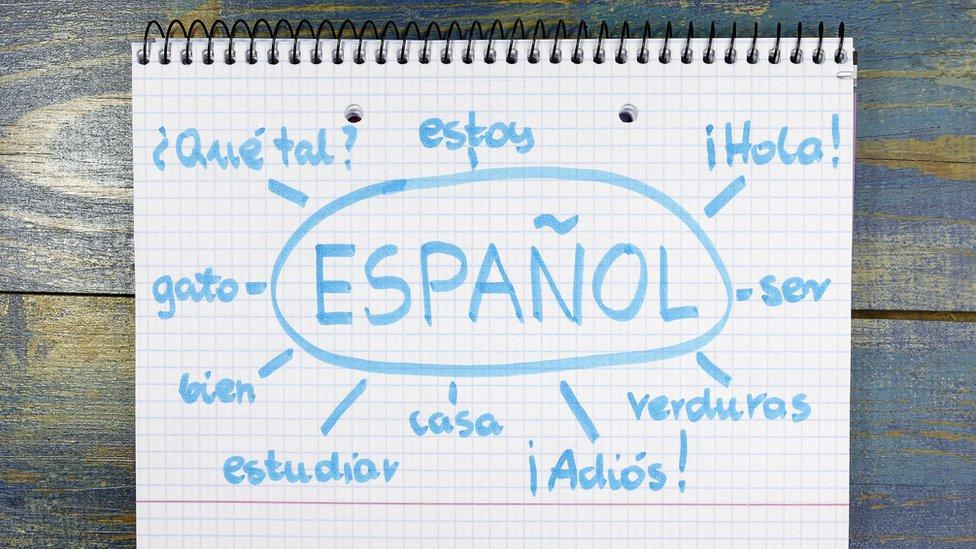 ¿Qué tal?
estoy
¡Hola!
ESPAÑOL
gato
ser
bien
casa
verduras
estudiar
¡Adiós!